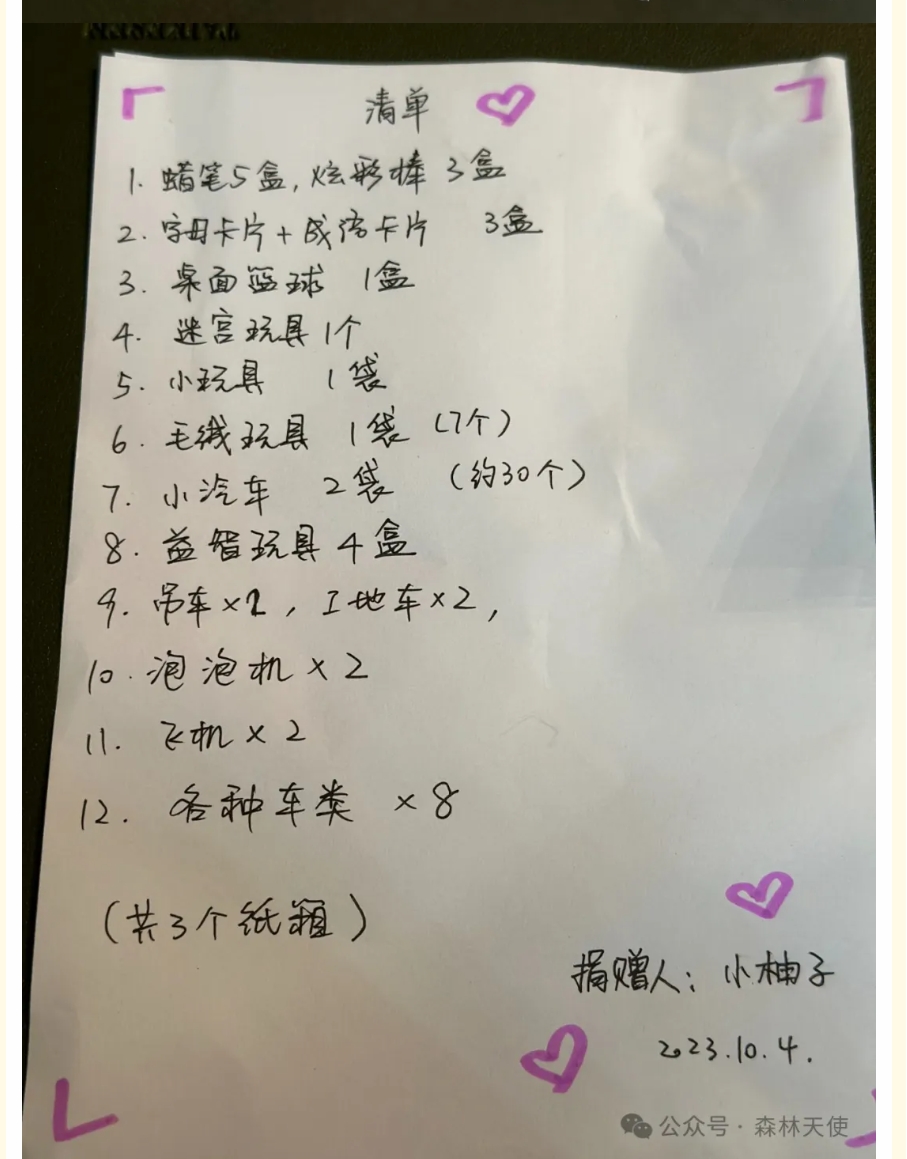 清单
1. 蜡笔5盒, 炫彩棒 3盒
2. 字母卡片 + 成语卡片 3盒
3. 桌面篮球 1盒
4. 迷宫玩具 1个
5. 小玩具 1袋
6. 毛绒玩具 1袋 (7个)
7. 小汽车 2袋 (约30个)
8. 益智玩具 4盒
9. 吊车×2, 工地车×2,
10. 泡泡机×2
11. 飞机×2
12. 各种车类 ×8
(共3个纸箱)
捐赠人: 小柚子
2023.10.4.
公众号·森林天使